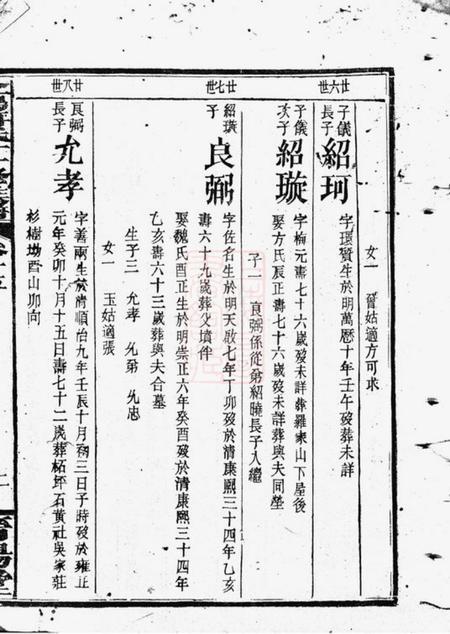 廿六世
女一 適方可求
子儀長子 紹珂 字環贊生於明萬曆十年壬午歿葬未詳
子儀次子 紹璇 字梅元壽七十六歲歿未詳葬羅家山下屋後
娶方氏辰正壽七十六歲歿未詳葬與夫同塋
子一 良弼係從弟紹曉長子入繼
廿七世
紹璇子 良弼 字佐名生於明天啟七年丁卯歿於清康熙三十四年乙亥
壽六十九歲葬父墳伴
娶魏氏酉正生於明崇正六年癸酉歿於清康熙三十四年
乙亥壽六十三歲葬與夫合墓
生子三 允孝 允弟 允忠
女一 玉姑適張
廿八世
良弼長子 允孝 字善兩生於清順治九年壬辰十月初三日子時歿於雍正
元年癸卯十月十五日壽七十二歲葬柘坪石黃社吳家莊
杉樹坳酉山卯向